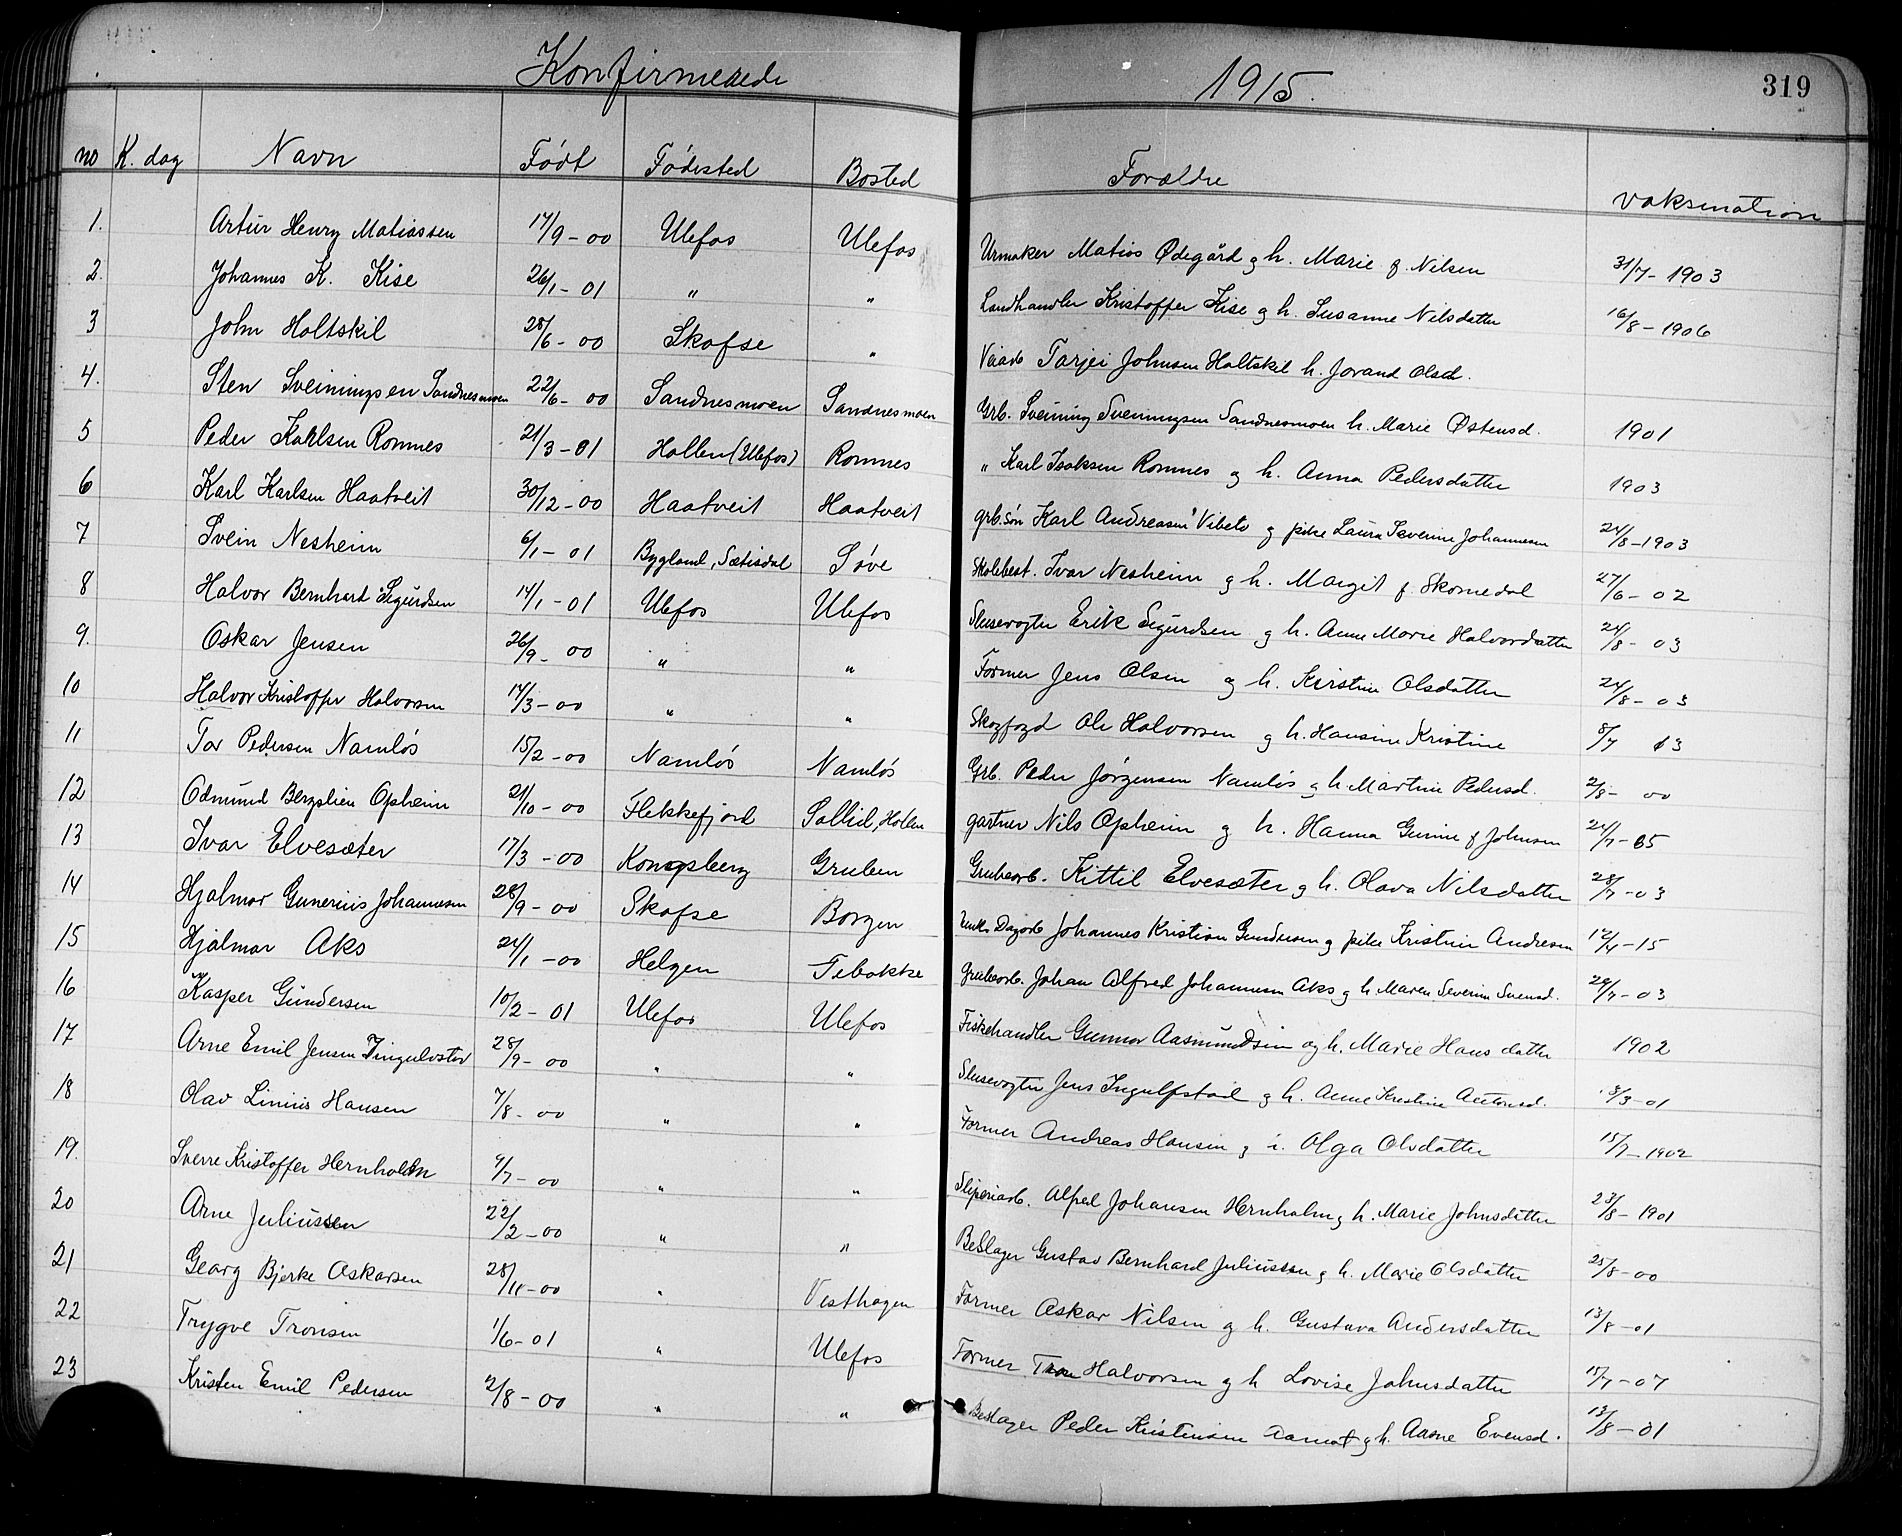 Konfirmerede 1915. 319
no K. dag Navn Født Fødested Bosted Forældre Vaksination
1. Artur Henry Matiassen 17/9-00 Ulefos Ulefos Urmaker Matias Ødegård og h. Marie f. Nilsen 31/7-1903
2. Johannes K. Kise 26/1-01 " " Landhandler Kristoffer Kise og h. Susanne Nilsdatter 16/8-1906
3 John Holtskil 28/6-00 Skafse " Veiarb Tarjei Johnsen Holtskil h. Jorand Olsd.
4. Sten Sveinungsen Sandnesmoen 22/6-00 Sandnesmoen Sandnesmoen Grb. Sveinung Sveinungsen Sandnesmoen h. Marie Østensd. 1901
5 Peder Karlsen Romnes 21/3-01 Hollen (Ulefos) Romnes " Karl Isaksen Romnes og h. Anna Pedersdatter 1903
6 Karl Karlsen Haatveit 30/12-00 Haatveit Haatveit grb.søn Karl Andreasen Vibeto og pike Laura Severine Johannesen 24/8-1903
7 Svein Nesheim 6/1-01 Bygland, Sætisdal Søve Skolebest. Ivar Nesheim og h. Margit f. Skomedal 27/6-02
8 Halvor Bernhard Sigurdsen 14/1-01 Ulefos Ulefos Slusevogter Erik Sigurdsen og h. Anne Marie Halvorsdatter 24/8-03
9. Oskar Jensen 26/9-00 " " Former Jens Olsen og h. Kirstine Olsdatter 24/8-03
10 Halvor Kristoffer Halvorsen 14/3-00 " " Skogfogd Ole Halvorsen og h. Hansine Kristine 8/7 03
11 Tor Pedersen Namløs 15/2-00 Namløs Namløs Grb. Peder Jørgensen Namløs og h. Martine Pedersd. 2/8-00
12 Odmund Bergslien Opheim 21/10-00 Flekkefjord Sollid, Holen gartner Nils Opheim og h. Hanna Gurine f Johnsen 24/7-05
13 Ivar Elvesæter 17/3-00 Kongsberg Gruben Grubearb. Kittil Elvesæter og h. Olava Nilsdatter 28/7-03
14 Hjalmar Gunerius Johannesen 28/9-00 Skafse Borgen Dagarb Johannes Kristian Gundersen og pike Kristine Andresen 12/4-15
15 Hjalmar Aks 24/1-00 Helgen Tebakke Grubearb. Johan Alfred Johannesen Aks og h. Maren Severine Svensd. 24/7-03
16 Kasper Gundersen 10/2-01 Ulefos Ulefos Fiskehandler Gunnar Aasmundsen og h. Marie Hansdatter 1902
17 Arne Emil Jensen Ingulvstad 28/9-00 " " Slusevogter Jens Ingulfstad og h. Anne Kristine Antonsd. 8/3-01
18 Olav Linius Hansen 7/8-00 " " Former Andreas Hansen og h. Olga Olsdatter 15/7-1902
19. Sverre Kristoffer Hernholm 9/7-00 " " Sliperiarb. Alfred Johansen Hernholm og h. Marie Johnsdatter 23/8-1901
20 Arne Juliussen 22/2-00 " " Beslager Gustav Bernhard Juliussen og h. Marie Olsdatter 25/8-00
21 Georg Bjerke Oskarsen 28/11-00 " Vesthagen Former Oskar Nilsen og h. Gustava Andersdatter 13/8-01
22 Trygve Tronsen 1/6-01 " Ulefos Former Tron Halvorsen og h Lovise Johnsdatter 15/7-07
23 Kristen Emil Pedersen 2/8-00 " " Beslager Peder Kristensen Aamot og h. Aasne Evensd. 13/8-01